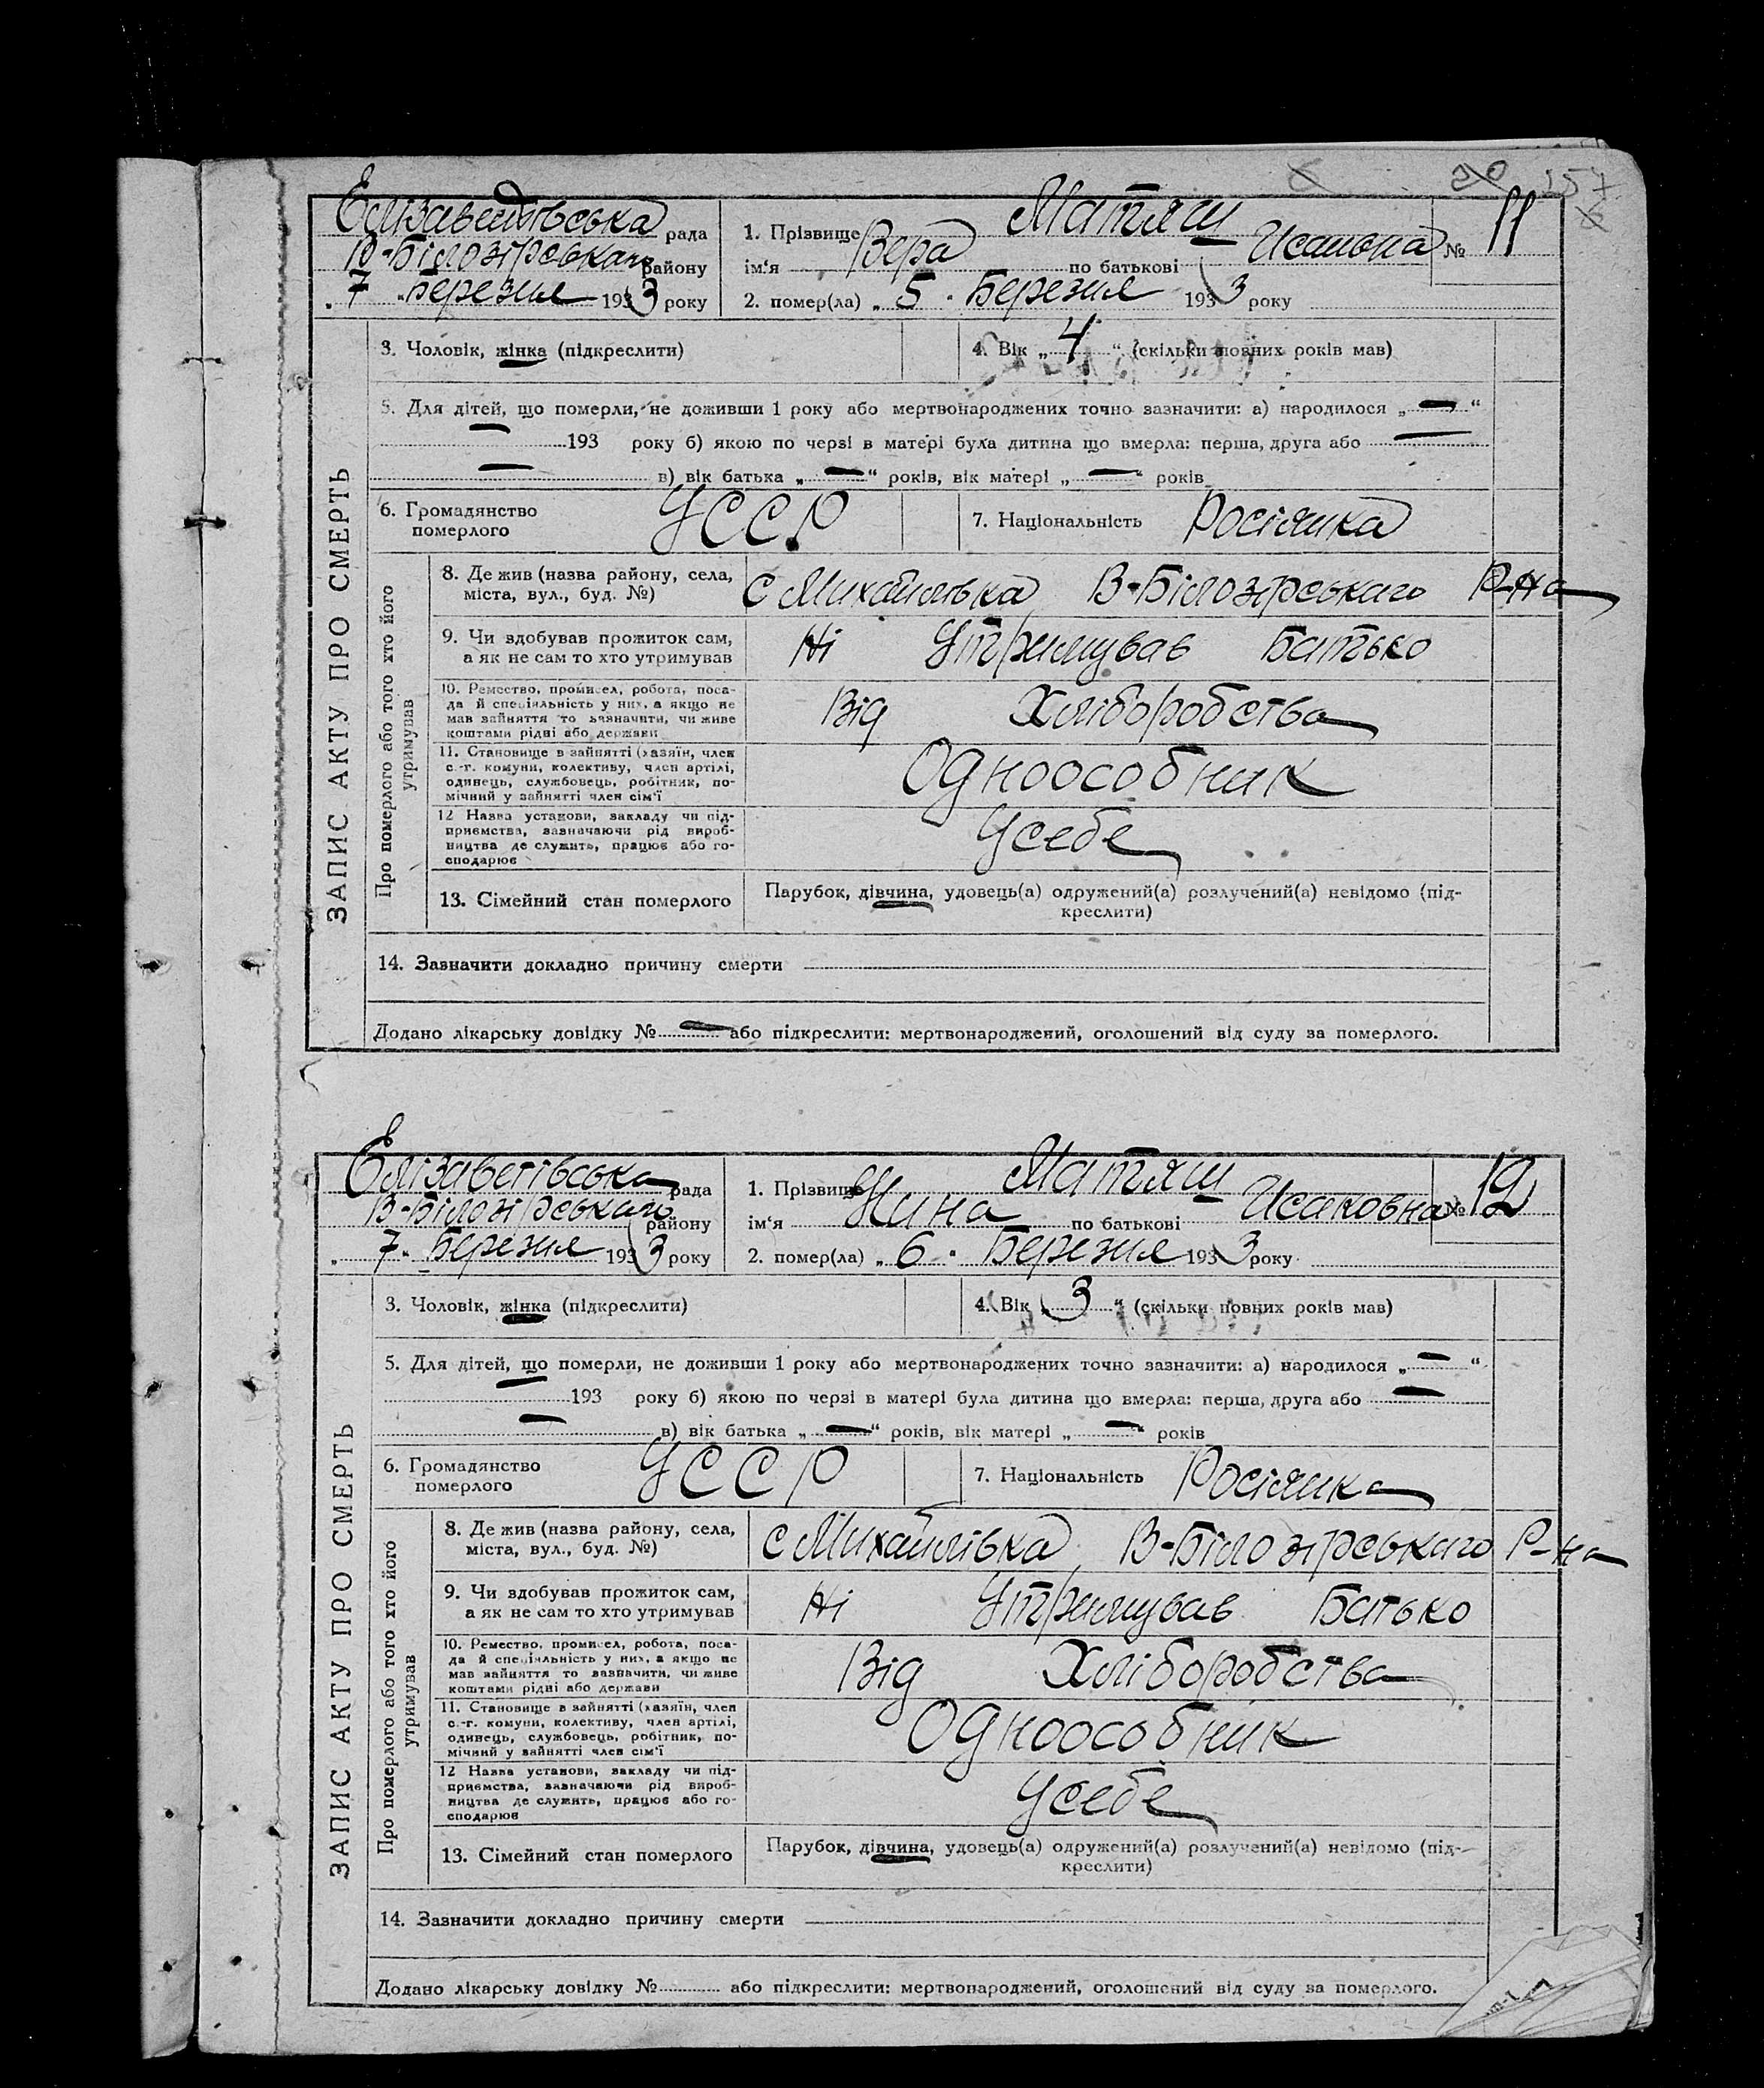 157
Єлізаветівська рада
В-Білозірськаго району
„ 7 „ Березня 1933 року
1. Прізвище Матяш
ім'я Вера по батькові
№ 11
2. помер(ла) „ 5 „ Березня 1933 року
ЗАПИС АКТУ ПРО СМЕРТЬ
3. Чоловік, жінка (підкреслити)
4. Вік „ 4 “ (скільки повних років мав)
5. Для дітей, що померли, не доживши 1 року або мертвонароджених точно зазначити: а) народилося „ — “
— 193 року б) якою по черзі в матері була дитина що вмерла: перша, друга або —
— в) вік батька „ — “ років, вік матері „ — “ років
6. Громадянство
померлого
УССР
7. Національність Росіянка
Про померлого або того хто його
утримував
8. Де жив (назва району, села,
міста, вул., буд. №)
С Михайлівка В-Білозірськаго Р-на
9. Чи здобував прожиток сам,
а як не сам то хто утримував
Ні Утримував Батько
10. Ремество, промисел, робота, поса-
да й спеціяльність у них, а якщо не
мав зайняття то зазначити, чи живе
коштами рідні або держави
Від Хліборобства
11. Становище в зайнятті (хазяїн, член
с.-г. комуни, колективу, член артілі,
одинець, службовець, робітник, по-
мічний у зайнятті член сім'ї
Одноособник
12 Назва установи, закладу чи під-
приємства, зазначаючи рід вироб-
ництва де служить, працює або го-
сподарює
Усебе
13. Сімейний стан померлого
Парубок, дівчина, удовець(а) одружений(а) розлучений(а) невідомо (під-
креслити)
14. Зазначити докладно причину смерти
Додано лікарську довідку № — або підкреслити: мертвонароджений, оголошений від суду за померлого.
Єлізаветівська рада
В-Білозірськаго району
„ 7 „ Березня 1933 року
1. Прізвище Матяш
ім'я Нина по батькові Исаковна
№ 12
2. помер(ла) „ 6 „ Березня 1933 року
ЗАПИС АКТУ ПРО СМЕРТЬ
3. Чоловік, жінка (підкреслити)
4. Вік „ 3 “ (скільки повних років мав)
5. Для дітей, що померли, не доживши 1 року або мертвонароджених точно зазначити: а) народилося „ — “
— 193 року б) якою по черзі в матері була дитина що вмерла: перша, друга або —
— в) вік батька „ — “ років, вік матері „ — “ років
6. Громадянство
померлого
УССР
7. Національність Росіянка
Про померлого або того хто його
утримував
8. Де жив (назва району, села,
міста, вул., буд. №)
С Михайлівка В-Білозірськаго Р-на
9. Чи здобував прожиток сам,
а як не сам то хто утримував
Ні Утримував Батько
10. Ремество, промисел, робота, поса-
да й спеціяльність у них, а якщо не
мав зайняття то зазначити, чи живе
коштами рідні або держави
Від Хліборобства
11. Становище в зайнятті (хазяїн, член
с.-г. комуни, колективу, член артілі,
одинець, службовець, робітник, по-
мічний у зайнятті член сім'ї
Одноособник
12 Назва установи, закладу чи під-
приємства, зазначаючи рід вироб-
ництва де служить, працює або го-
сподарює
Усебе
13. Сімейний стан померлого
Парубок, дівчина, удовець(а) одружений(а) розлучений(а) невідомо (під-
креслити)
14. Зазначити докладно причину смерти
Додано лікарську довідку № або підкреслити: мертвонароджений, оголошений від суду за померлого.